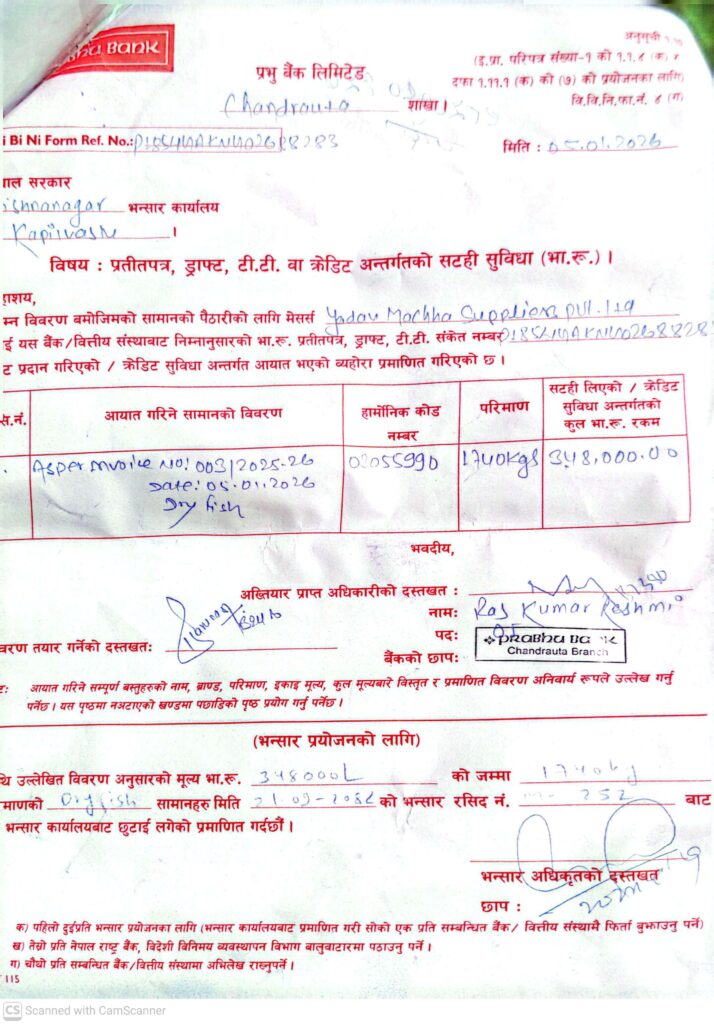 BHU BANK
अनुसूची
प्रभु बैंक लिमिटेड
(इ.प्रा. परिपत्र संख्या-१ को १.१.४ (क) र
दफा १.११.१ (क) को (७) को प्रयोजनका लागि)
वि.वि.नि.फा.नं. ४ (ग)
Chandrauta शाखा।
i Bi Ni Form Ref. No.:
मिति : 05.01.2026
पाल सरकार
ishnanagar भन्सार कार्यालय
Kapilvastu ।
विषय : प्रतीतपत्र, ड्राफ्ट, टी.टी. वा क्रेडिट अन्तर्गतको सटही सुविधा (भा.रू.) ।
हाशय,
म्न विवरण बमोजिमको सामानको पैठारीको लागि मेसर्स Yadav Machha Suppliers pvt. ltd
ई यस बैंक/वित्तीय संस्थाबाट निम्नानुसारको भा.रू. प्रतीतपत्र, ड्राफ्ट, टी.टी. संकेत नम्बर
ट प्रदान गरिएको / क्रेडिट सुविधा अन्तर्गत आयात भएको व्यहोरा प्रमाणित गरिएको छ ।
स.नं. आयात गरिने सामानको विवरण हार्मोनिक कोड नम्बर परिमाण सटही लिएको / क्रेडिट सुविधा अन्तर्गतको कुल भा.रू. रकम
As per Invoice NO: 003/2025-26 03055990 1740kgs 348,000.00
Date: 05.01.2026
Dry fish
भवदीय,
अख्तियार प्राप्त अधिकारीको दस्तखत :
नाम: Raj Kumar Reshmi
पद:
वरण तयार गर्नेको दस्तखत:
बैंकको छाप: PRABHU BANK
Chandrauta Branch
ट: आयात गरिने सम्पूर्ण बस्तुहरुको नाम, ब्राण्ड, परिमाण, इकाइ मूल्य, कुल मूल्यबारे विस्तृत र प्रमाणित विवरण अनिवार्य रूपले उल्लेख गर्नु
पर्नेछ । यस पृष्ठमा नअटाएको खण्डमा पछाडिको पृष्ठ प्रयोग गर्नु पर्नेछ ।
(भन्सार प्रयोजनको लागि)
थि उल्लेखित विवरण अनुसारको मूल्य भा.रू. 348000 को जम्मा 1740kg
माणको Dry fish सामानहरु मिति 21-09-2082 को भन्सार रसिद नं. 252 बाट
भन्सार कार्यालयबाट छुटाई लगेको प्रमाणित गर्दछौं ।
भन्सार अधिकृतको दस्तखत
छाप :
क) पहिलो दुईप्रति भन्सार प्रयोजनका लागि (भन्सार कार्यालयबाट प्रमाणित गरी सोको एक प्रति सम्बन्धित बैंक/ वित्तीय संस्थामै फिर्ता बुझाउनु पर्ने)
ख) तेस्रो प्रति नेपाल राष्ट्र बैंक, विदेशी विनिमय व्यवस्थापन विभाग बालुवाटारमा पठाउनु पर्ने ।
ग) चौथो प्रति सम्बन्धित बैंक/वित्तीय संस्थामा अभिलेख राख्नुपर्ने ।
115
CS Scanned with CamScanner